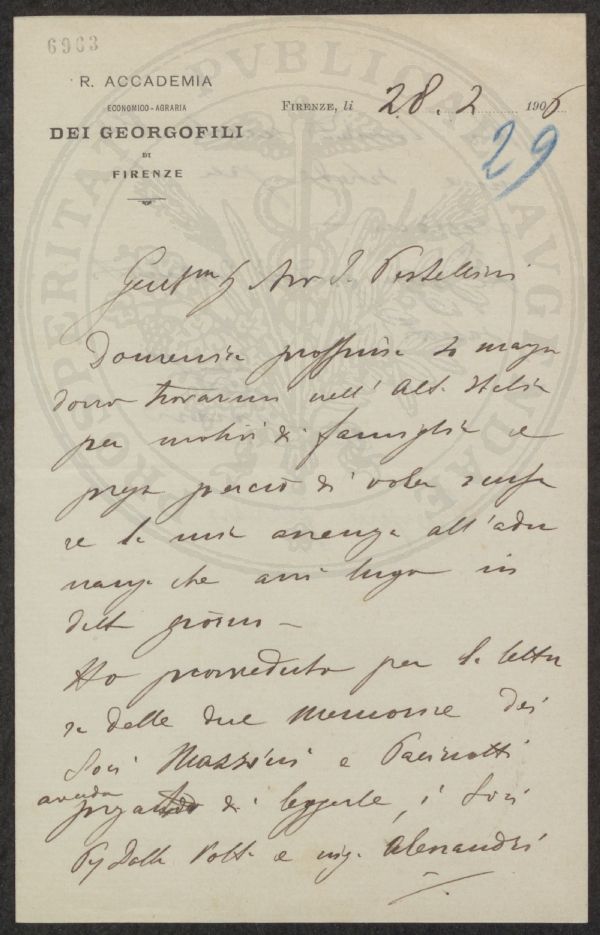 6963
R. ACCADEMIA
ECONOMICO-AGRARIA
DEI GEORGOFILI
DI
FIRENZE
FIRENZE, li 28. 2 1906
29
PROSPERITATI PVBLICAE AVGENDAE
Pestellini
Domenica prossima
dovrò trovarmi nell'Alta Italia
per motivi di famiglia e
prego perciò di voler scusa
re la mia assenza all'adu
nanza che avrà luogo in
detto giorno –
Ho provveduto per la lettu
ra delle due Memorie dei
Soci Massini e Pacinotti
avendo
pregato di leggerle, i Soci
Dalla Volta e ing. Alessandri